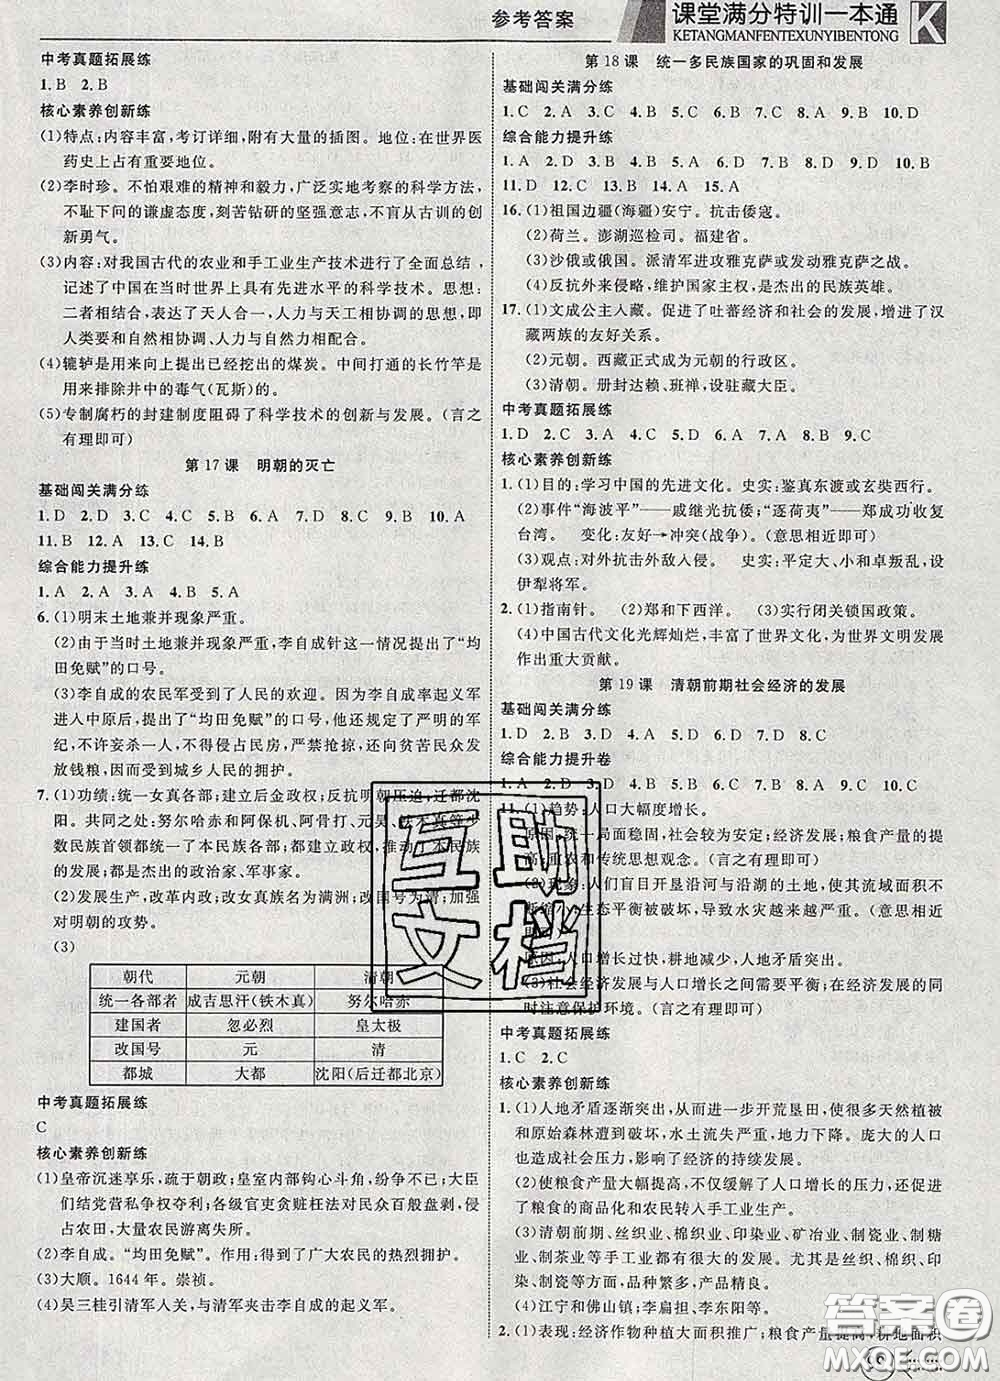 参考答案
课堂满分特训一本通
KETANGMANFENTEXUNYIBENTONG
K
中考真题拓展练
1.B 2.B
核心素养创新练
(1)特点:内容丰富,考订详细,附有大量的插图。地位:在世界医
药史上占有重要地位。
(2)李时珍。不怕艰难的精神和毅力,广泛实地考察的科学方法,
不耻下问的谦虚态度,刻苦钻研的坚强意志,不盲从古训的创
新勇气。
(3)内容:对我国古代的农业和手工业生产技术进行了全面总结,
记述了中国在当时世界上具有先进水平的科学技术。思想:
二者相结合,表达了天人合一,人力与天工相协调的思想,即
人类要和自然相协调、人力与自然力相配合。
(4)辘轳是用来向上提出已经挖出的煤炭。中间打通的长竹竿是
用来排除井中的毒气(瓦斯)的。
(5)专制腐朽的封建制度阻碍了科学技术的创新与发展。(言之
有理即可)
第17课 明朝的灭亡
基础闯关满分练
1.D 2.D 3.C 4.C 5.D 6.B 7.B 8.C 9.B 10.A
11.B 12.A 13.C 14.B
综合能力提升练
1.A 2.A 3.A 4.B 5.A
6.(1)明末土地兼并现象严重。
(2)由于当时土地兼并现象严重,李自成针这一情况提出了“均
田免赋”的口号。
(3)李自成的农民军受到了人民的欢迎。因为李自成率起义军
进入中原后,提出了“均田免赋”的口号,他还规定了严明的军
纪,不许妄杀一人,不得侵占民房,严禁抢掠,还向贫苦民众发
放钱粮,因而受到城乡人民的拥护。
7.(1)功绩:统一女真各部;建立后金政权;反抗明朝压迫,迁都沈
阳。共同之处:努尔哈赤和阿保机、阿骨打、元昊、铁木真等少
数民族首领都统一了本民族各部;都建立政权,推动了本民族
的发展;都是杰出的政治家、军事家。
(2)发展生产,改革内政;改女真族名为满洲;改国号为清;加强
对明朝的攻势。
(3)
朝代 元朝 清朝
统一各部者 成吉思汗(铁木真) 努尔哈赤
建国者 忽必烈 皇太极
改国号 元 清
都城 大都 沈阳(后迁都北京)
中考真题拓展练
C
核心素养创新练
(1)皇帝沉迷享乐,疏于朝政;皇室内部钩心斗角,纷争不已;大臣
们结党营私争权夺利;各级官吏贪赃枉法对民众百般虐剥,侵
占农田,大量农民游离失所。
(2)李自成。“均田免赋”。作用:得到了广大农民的热烈拥护。
(3)大顺。1644年。崇祯。
(4)吴三桂引清军人关,与清军夹击李自成的起义军。
第18课 统一多民族国家的巩固和发展
基础闯关满分练
1.C 2.A 3.C 4.A 5.D 6.C 7.D 8.A 9.B 10.D
综合能力提升练
1.A 2.D 3.B 4.B 5.C 6.D 7.D 8.D 9.D 10.B
11.D 12.C 13.C 14.A 15.A
16.(1)祖国边疆(海疆)安宁。抗击倭寇。
(2)荷兰。澎湖巡检司。福建省。
(3)沙俄或俄国。派清军进攻雅克萨或发动雅克萨之战。
(4)反抗外来侵略,维护国家主权,是杰出的民族英雄。
17.(1)文成公主人藏。促进了吐蕃经济和社会的发展,增进了汉
藏两族的友好关系。
(2)元朝。西藏正式成为元朝的行政区。
(3)清朝。册封达赖、班禅,设驻藏大臣。
中考真题拓展练
1.D 2.D 3.C 4.C 5.A 6.A 7.B 8.B 9.C
核心素养创新练
1.(1)目的:学习中国的先进文化。史实:鉴真东渡或玄奘西行。
(2)事件“海波平”——戚继光抗倭;“逐荷夷”——郑成功收复
台湾。 变化:友好→冲突(战争)。(意思相近即可)
(3)观点:对外抗击外敌入侵。 史实:平定大、小和卓叛乱,设
伊犁将军。
2.(1)指南针。 (2)郑和下西洋。 (3)实行闭关锁国政策。
(4)中国古代文化光辉灿烂,丰富了世界文化,为世界文明发展
作出重大贡献。
第19课 清朝前期社会经济的发展
基础闯关满分练
1.D 2.B 3.C 4.A 5.D 6.D 7.D 8.C
综合能力提升卷
1.A 2.D 3.D 4.D 5.B 6.C 7.C 8.C 9.A 10.B
11.(1)趋势:人口大幅度增长。
原因:统一局面稳固,社会较为安定;经济发展;粮食产量的提
高;重农和传统思想观念。(言之有理即可)
(2)现象:人们盲目开垦沿河与沿湖的土地,使其流域面积不
断缩小,生态平衡被破坏,导致水灾越来越严重。(意思相近
即可)
原因:人口增长过快,耕地减少,人地矛盾突出。
(3)社会经济发展与人口增长之间需要平衡;在发展经济的同
时注意保护环境。(言之有理即可)
中考真题拓展练
1.C 2.C
核心素养创新练
1.(1)人地矛盾逐渐突出,从而进一步开荒垦田,使很多天然植被
和原始森林遭到破坏,水土流失严重,地力下降。庞大的人口
造成社会压力,影响了经济的持续发展。
(2)使粮食产量大幅提高,不仅缓解了人口增长的压力,促进了
粮食的商品化和农民转入手工业生产。
(3)清朝前期、丝织业、棉织业、印染业、矿冶业、制瓷业、制糖
业、制茶业等手工业都有很大的发展。尤其是丝织、棉织、印
染、制瓷等方面,品种繁多,产品精良。
(4)江宁和佛山镇;李扁担、李东阳等。
2.(1)表现:经济作物种植大面积推广;粮食产量提高,耕地面积
互助
文档
答案圈